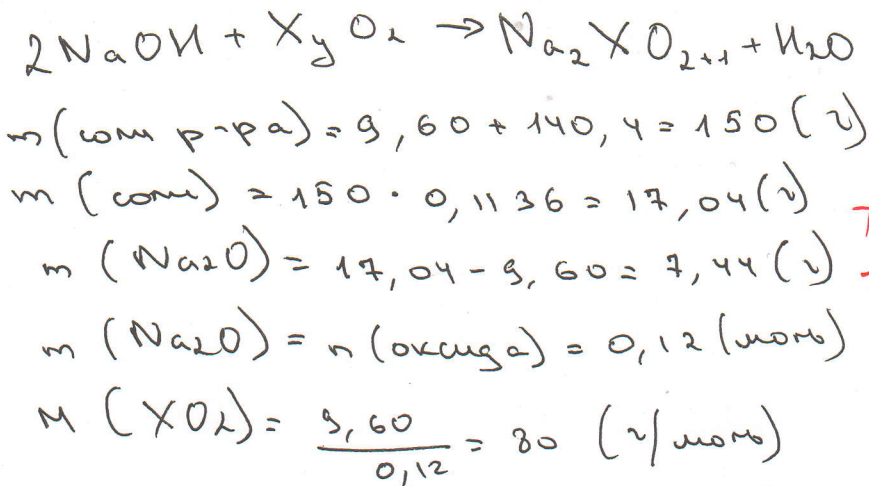 2NaOH + XyO2 → Na2XO2+1 + H2O
m (соли р-ра) = 9,60 + 140,4 = 150 (г)
m (соли) = 150 · 0,1136 = 17,04 (г)
m (Na2O) = 17,04 - 9,60 = 7,44 (г)
m (Na2O) = n (оксида) = 0,12 (моль)
M (XO2) = 9,60 / 0,12 = 80 (г/моль)